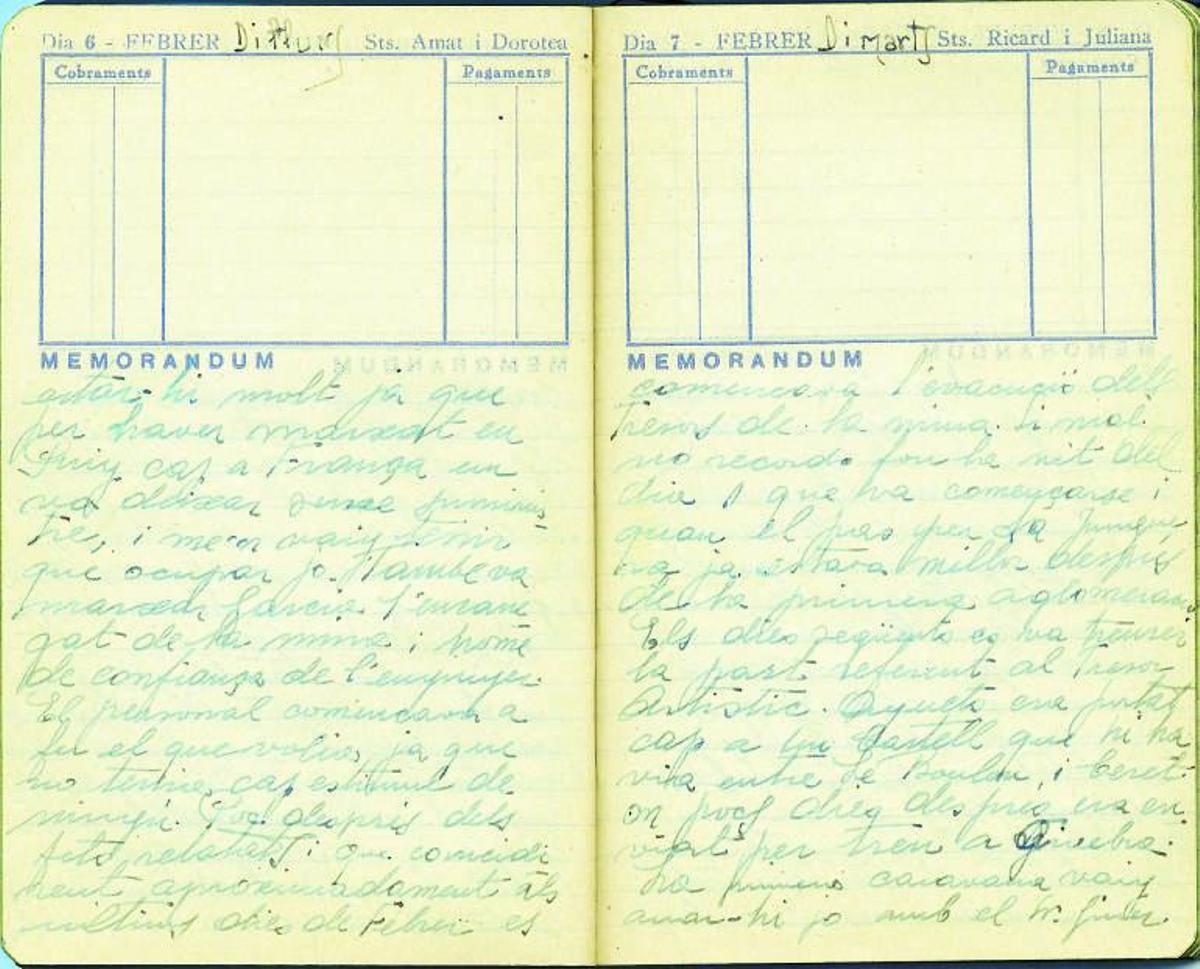 Dia 6 - FEBRER Dilluns Sts. Amat i Dorotea
Cobraments Pagaments
MEMORANDUM
estar-hi molt ja que
per haver marxat en
cap a França em
va deixar sense
i me'n vaig tenir
que ocupar jo. També va
marxar Garcia l'encarre
gat de la mina i home
de confiança de l'enyinyer.
El personal comencava a
fer el que volia, ja que
no tenia cap estimul de
ningú. Poc després dels
fets relatats i que coincidi
rent aproximadament als
ultims dies de Febrer es
Dia 7 - FEBRER Dimarts Sts. Ricard i Juliana
Cobraments Pagaments
MEMORANDUM
comencava l'evacució dels
tresors de la mina. Si mal
no recordo fou la nit del
dia 1 que va començarse i
quan el pas per La Junque
ra ja estava millor després
de la primera
Els dies següents es va treurer
la part referent al Tresor
Artístic. Aquets era portat
cap a un Castell que hi ha
via entre Le Boulou i Ceret.
on pocs dies després era en
viat per tren a Ginebra.
La primera caravana vaig
anar-hi jo amb el Sr. Giner.